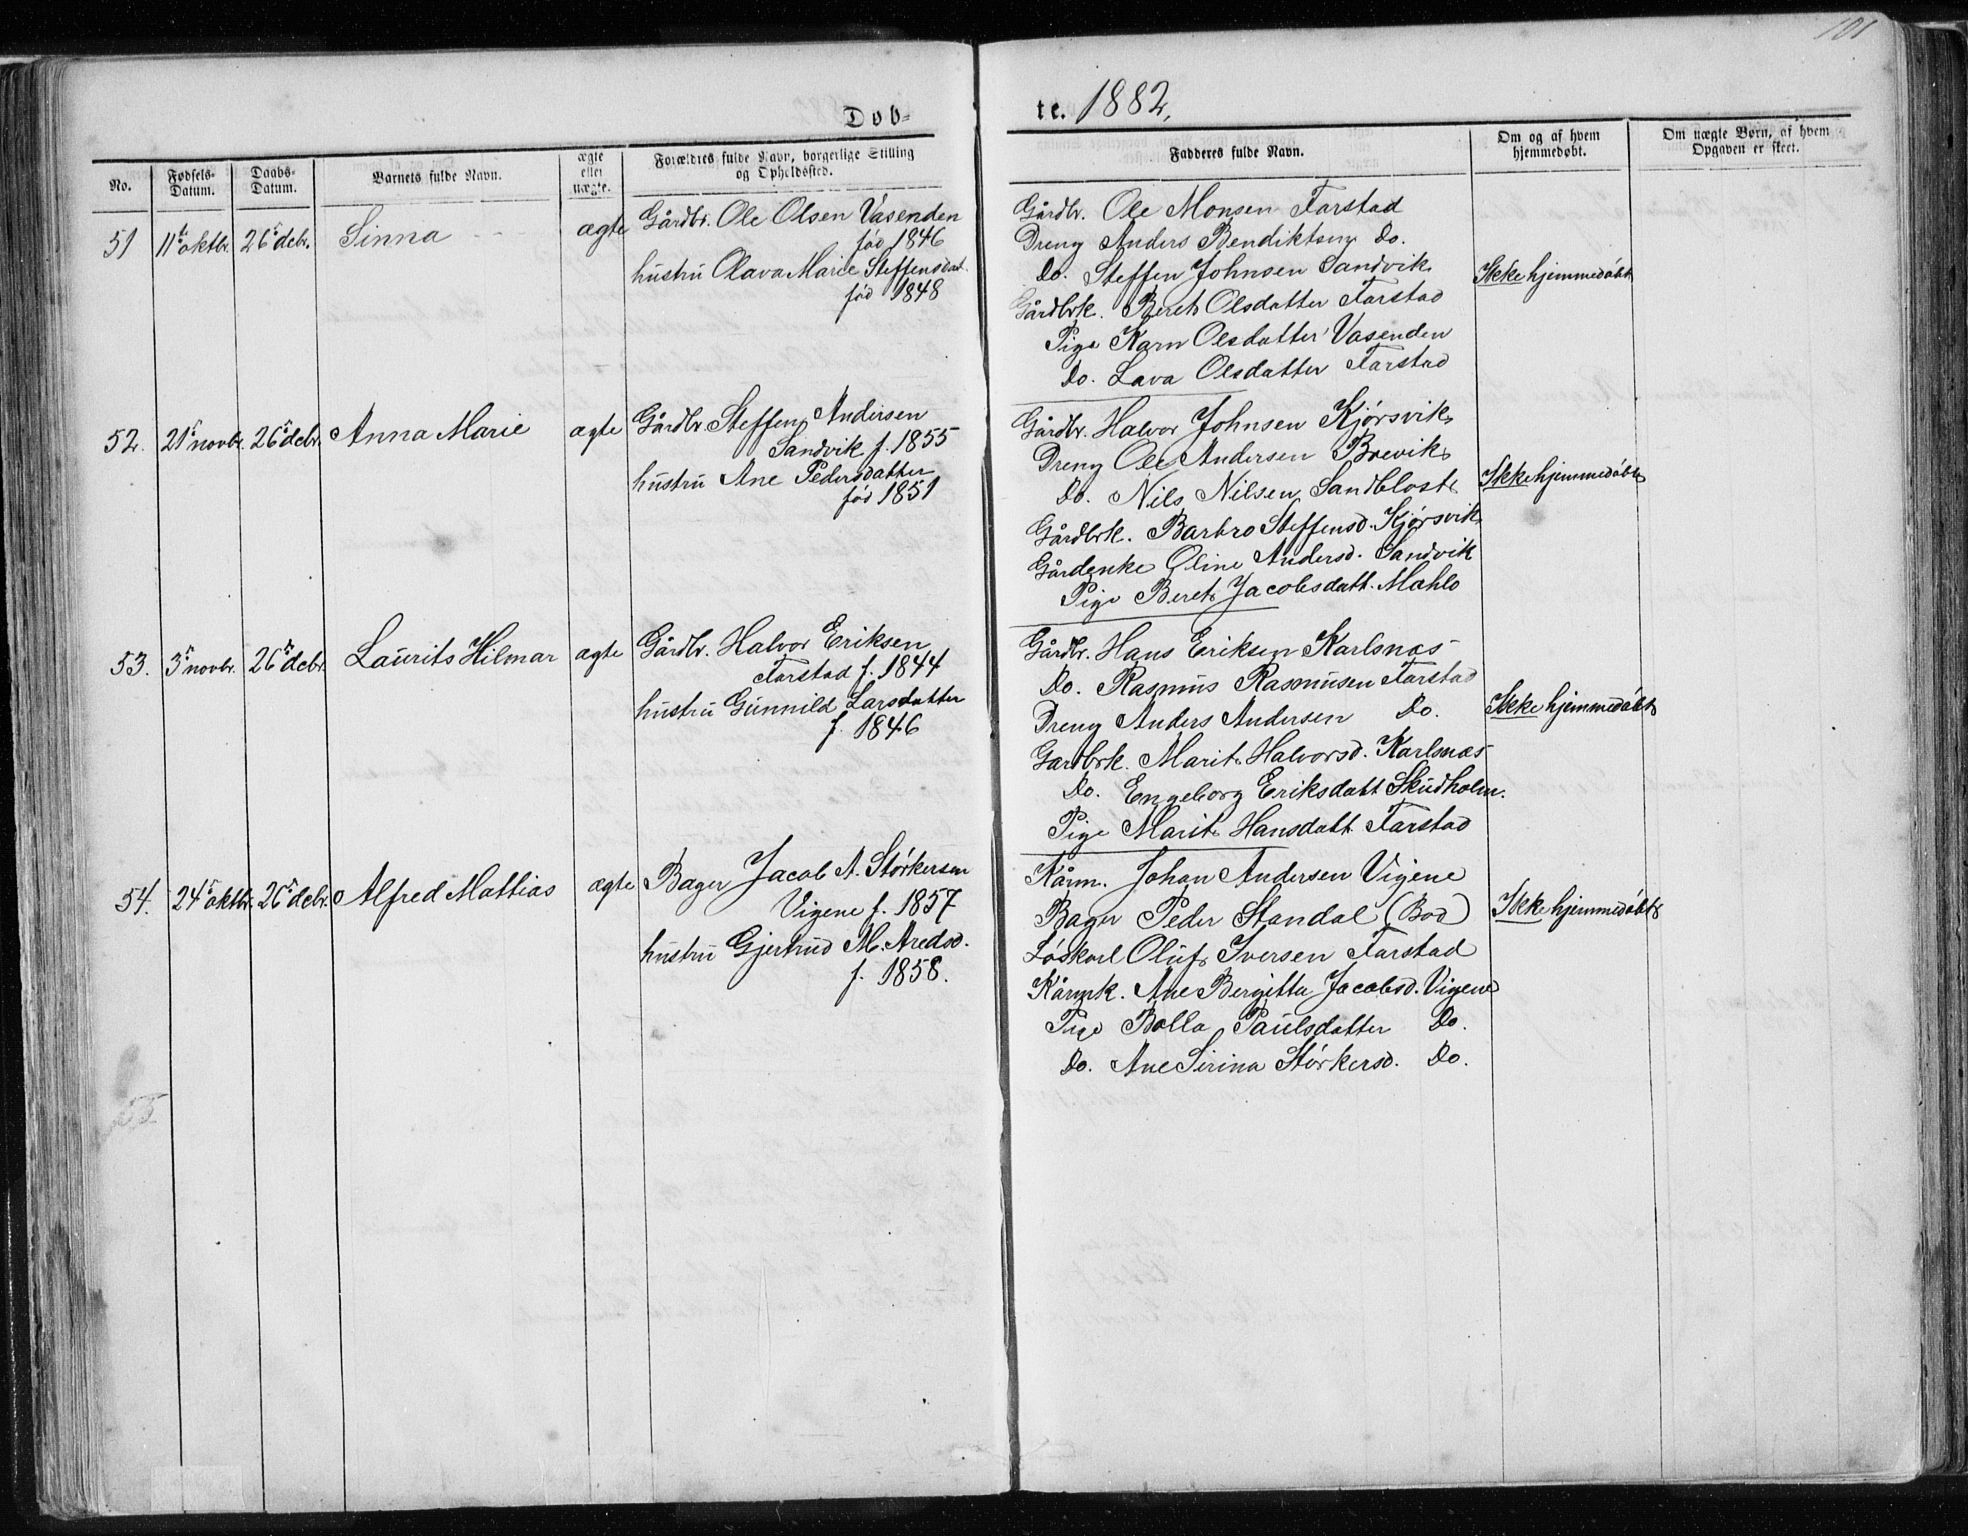 101
Døb-
te. 1882,
No.
Fødsels-
Datum.
Daabs-
Datum.
Barnets fulde Navn.
ægte
eller
uægte.
Forældres fulde Navn, borgerlige Stilling
og Opholdssted.
Fadderes fulde Navn.
Om og af hvem
hjemmedøbt.
Om uægte Børn, af hvem
Opgaven er skeet.
51 11te oktbr. 26de debr. Sinna ægte
Gårdbr. Ole Olsen Vasenden
fød 1846
hustru Olava Marie Steffensdat.
fød 1848
Gårdbr. Ole Monsen Farstad
Dreng Anders Bendiktsen do.
do. Steffen Johnsen Sandvik
Gårdbrk. Beret Olsdatter Farstad
Pige Karn Olsdatter Vasenden
do. Lava Olsdatter Farstad
Ikke hjemmedøbt
52. 21de novbr. 26de debr. Anna Marie ægte
Gårdbr. Steffen Andersen
Sandvik f. 1855
hustru Ane Pedersdatter
fød 1851
Gårdbr. Halvor Johnsen Kjørsvik
Dreng Ole Andersen Brevik
do. Nils Nilsen Sandblost
Gårdbrk. Barbro Steffensd. Kjørsvik
Gårdenke Oline Andersd. Sandvik
Pige Beret Jacobsdatt. Mahlo
Ikke hjemmedøbt
53. 3de novbr. 26de debr. Laurits Hilmar ægte
Gårdbr. Halvor Eriksen
Farstad f. 1844
hustru Gunnild Larsdatter
f. 1846
Gårdbr. Hans Eriksen Karlsnæs
do. Rasmus Rasmusen Farstad
Dreng Anders Andersen do.
Gardbrk. Marit Halvorsd. Karlsnæs
do. Engeborg Eriksdatt Skudholm.
Pige Marit Hansdatt. Farstad
Ikke hjemmedøbt
54. 24de oktbr. 26de debr. Alfred Mattias ægte
Bager Jacob A. Størkersen
Vigene f. 1857
hustru Gjertrud M. Aredsd.
f. 1858.
Kårm. Johan Andersen Vigene
Bager Peder Standal (Bod)
Løskarl Oluf Iversen Farstad
Kårmk. Ane Bergitta Jacobsd. Vigene
Pige Bolla Paulsdatter do.
do. Ane Sirina Størkersd. do.
Ikke hjemmedøbt
55